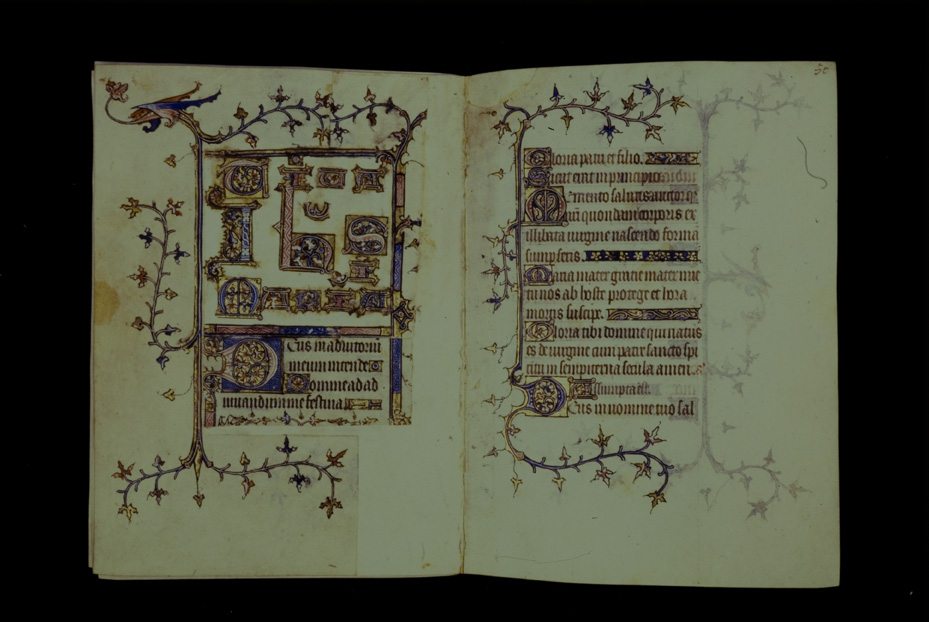 Deus in adiutoriu
meum intende
Domine ad ad
iuuandum me festina
50
Gloria patri et filio.
Sicut erat in principio
Memento salutis auctor q
nostri quondam corporis ex
illibata uirgine nascendo forma
sumpseris.
Maria mater gratie mater mie
tu nos ab hoste protege et hora
mortis suscipe.
Gloria tibi domine qui natus
es de uirgine cum patre sancto spi
ritu in sempiterna secula amen.
Assumpta est
Deus in nomine tuo sal